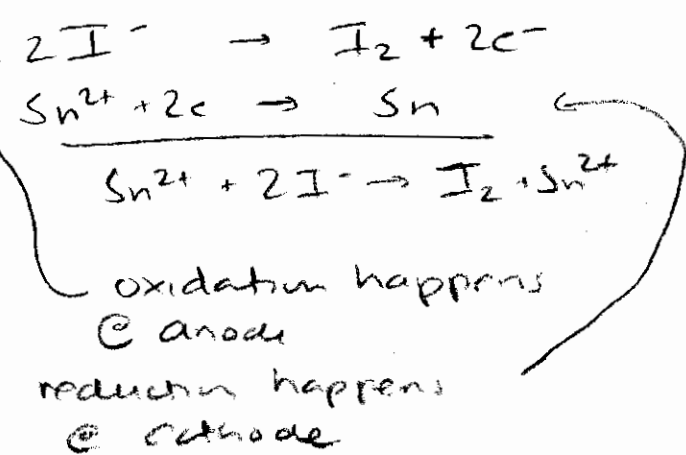 2I⁻ → I₂ + 2e⁻
Sn²⁺ + 2e → Sn
Sn²⁺ + 2I⁻ → I₂ + Sn²⁺
oxidation happens
@ anode
reduction happens
@ cathode